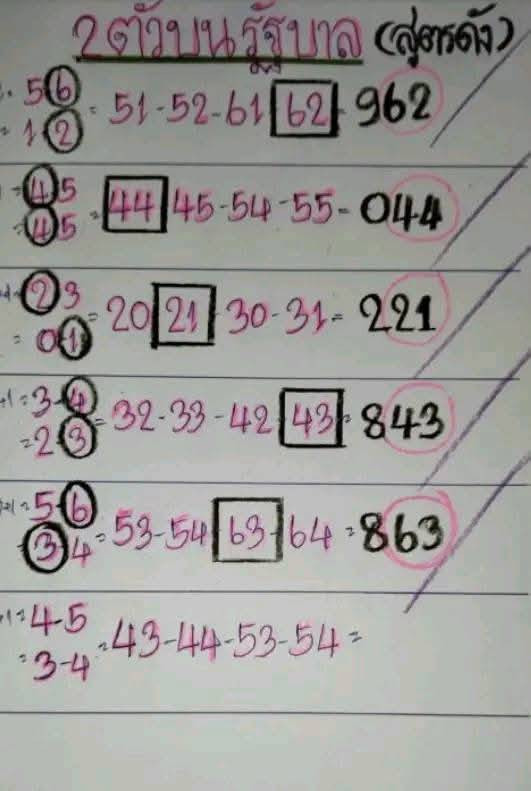 2ตัวบนรัฐบาล (สูตรดัง)
56
= 51-52-61 62 962
= 12
= 45
= 44 45-54-55- 044
= 45
23
= 20 21 30-31= 221
= 01
+1=3-4
= 32-33-42 43 = 843
=2-3
+1=5-6
= 53-54 63-64 = 863
34
+1=4-5
= 43-44-53-54=
=3-4